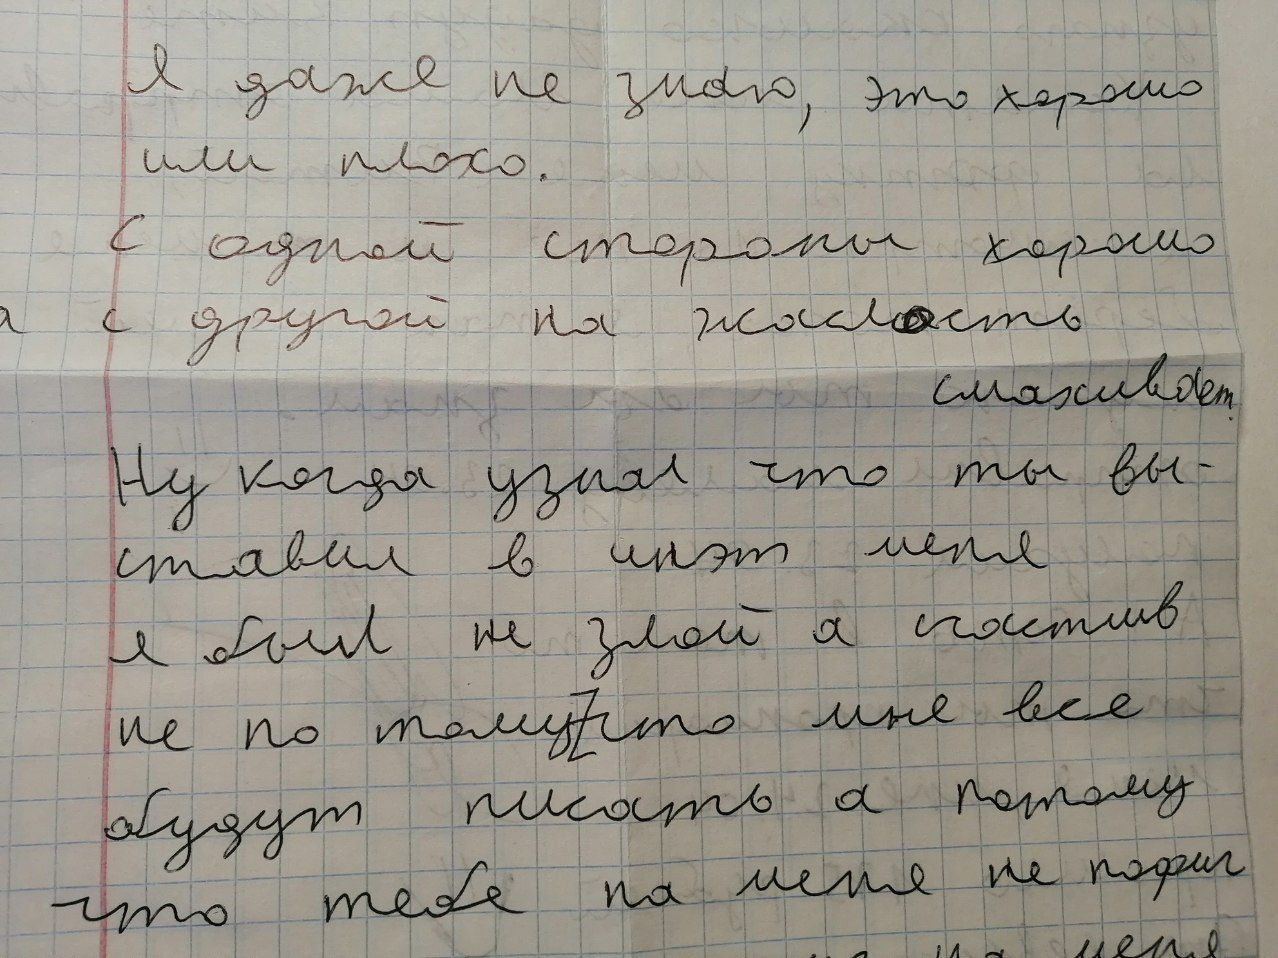 Я даже не знаю, это хорошо
или плохо.
С одной стороны хорошо
а с другой на жаслость
смахивает.
Ну когда узнал что ты вы-
ставил в инэт меня
я был не злой а счастлив
не по тому что мне все
будут писать а потому
что тебе на меня не пофиг
на меня